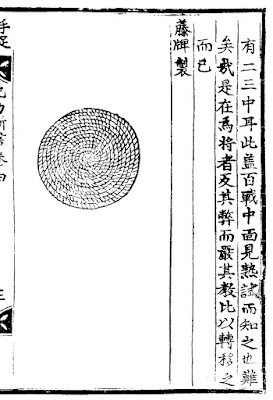 有二三中耳此盖百戰中面見熟試而知之也難
矣哉是在為將者反其弊而嚴其教比以轉移之
而已
藤牌製
手足
新書卷四
三